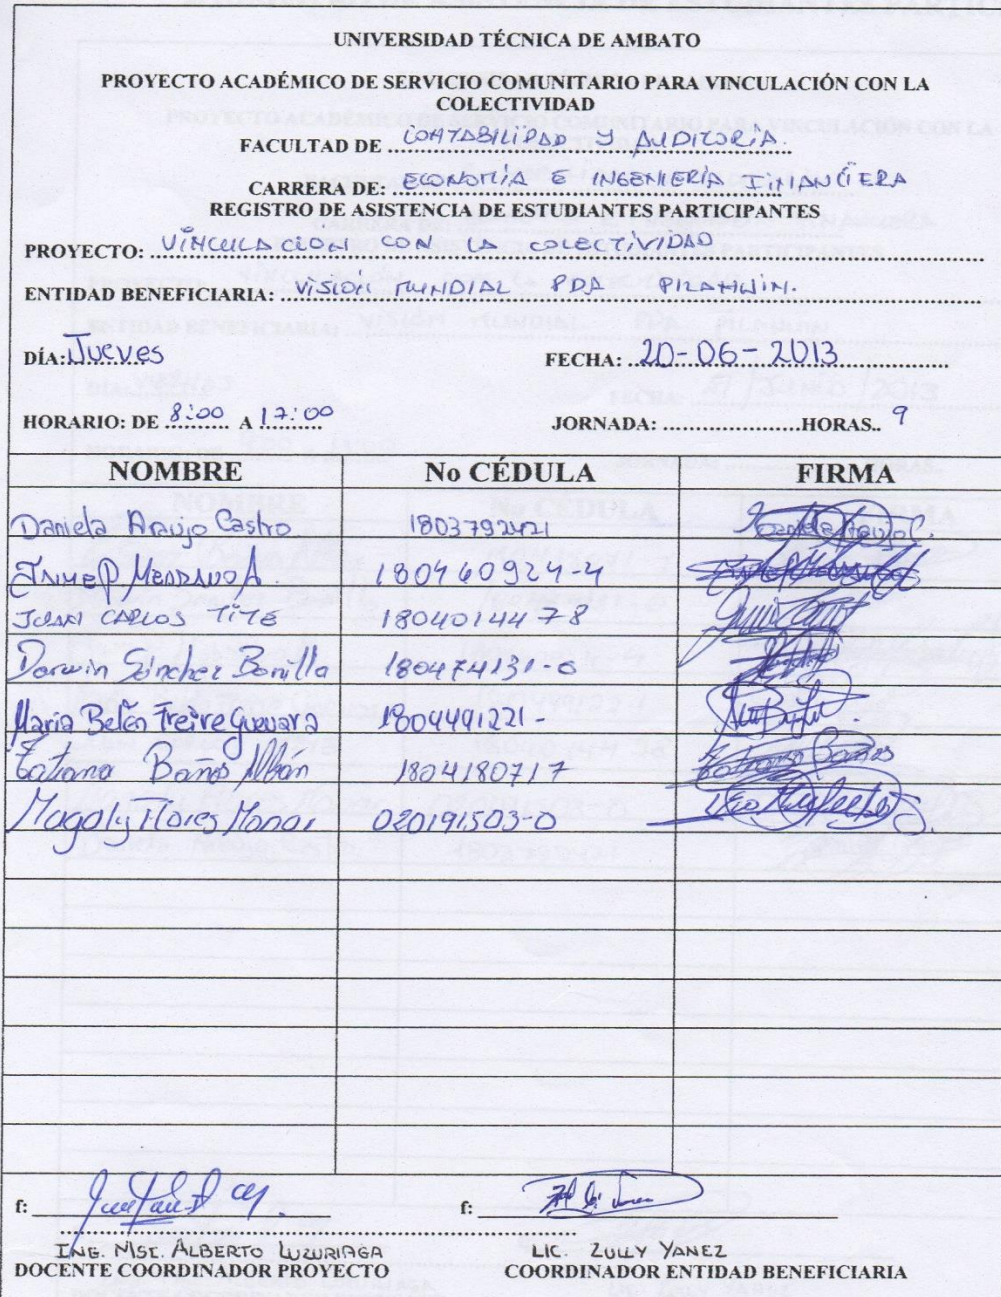 UNIVERSIDAD TÉCNICA DE AMBATO
PROYECTO ACADÉMICO DE SERVICIO COMUNITARIO PARA VINCULACIÓN CON LA
COLECTIVIDAD
FACULTAD DE CONTABILIDAD Y AUDITORÍA.
CARRERA DE: ECONOMÍA E INGENIERÍA FINANCIERA
REGISTRO DE ASISTENCIA DE ESTUDIANTES PARTICIPANTES
PROYECTO: VINCULACION CON LA COLECTIVIDAD
ENTIDAD BENEFICIARIA: VISION MUNDIAL PDA PILAHUIN.
DÍA: Jueves FECHA: 20-06-2013
HORARIO: DE 8:00 A 17:00 JORNADA: ....................HORAS.. 9
NOMBRE No CÉDULA FIRMA
Daniela Araujo Castro 1803792421
MENDANO A. 180460924-4
JUAN CARLOS TITE 1804014478
Darwin Sánchez Bonilla 180474131-0
Maria Belén Freire Guevara 1804491221-
Tatiana Baños Albán 1804180717 Tatiana Baños
Magaly Flores 020191503-0
f: f:
ING. MSC. ALBERTO LUZURIAGA LIC. ZULLY YANEZ
DOCENTE COORDINADOR PROYECTO COORDINADOR ENTIDAD BENEFICIARIA